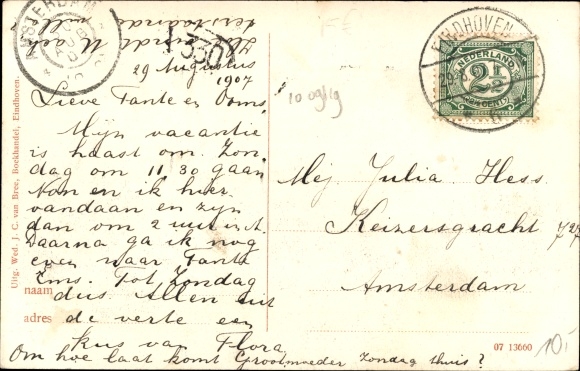 29 Augustus
1907
Lieve Tante en Ooms,
Mijn vacantie
is haast om. Zon-
dag om 11.30 gaan
Non en ik hier
vandaan en zijn
dan om 2 uur in A.
Daarna ga ik nog
even naar Tante
Ems. Tot Zondag
dus. Allen uit
de verte een
kus van Flora
Om hoe laat komt Grootmoeder Zondag thuis?
naam
adres
Uitg. Wed. J. C. van Bree, Boekhandel, Eindhoven.
AMSTERDAM
330
10 09/19
EINDHOVEN
NEDERLAND
2½
CENT
Mej Julia Hess.
Keizersgracht 727
Amsterdam
07 13660
10,-